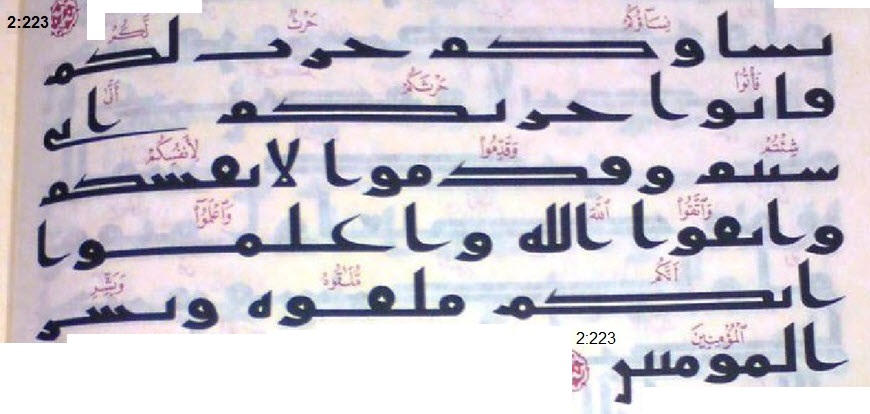 2:223
نِسَآؤُكُمْ حَرْثٌ لَّكُمْ
نساوكم حرث لكم
فَأْتُوا۟ حَرْثَكُمْ أَنَّىٰ
فاتوا حرثكم انى
شِئْتُمْ وَقَدِّمُوا۟ لِأَنفُسِكُمْ
شئتم وقدموا لانفسكم
وَٱتَّقُوا۟ ٱللَّهَ وَٱعْلَمُوٓا۟
واتقوا الله واعلموا
أَنَّكُم مُّلَـٰقُوهُ وَبَشِّرِ
انكم ملقوه وبشر
2:223
ٱلْمُؤْمِنِينَ
المومنين